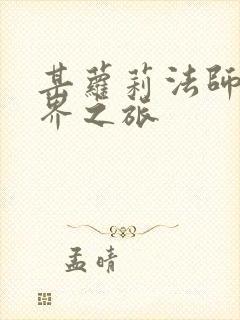 某蘿莉法師
界之旅
孟晴